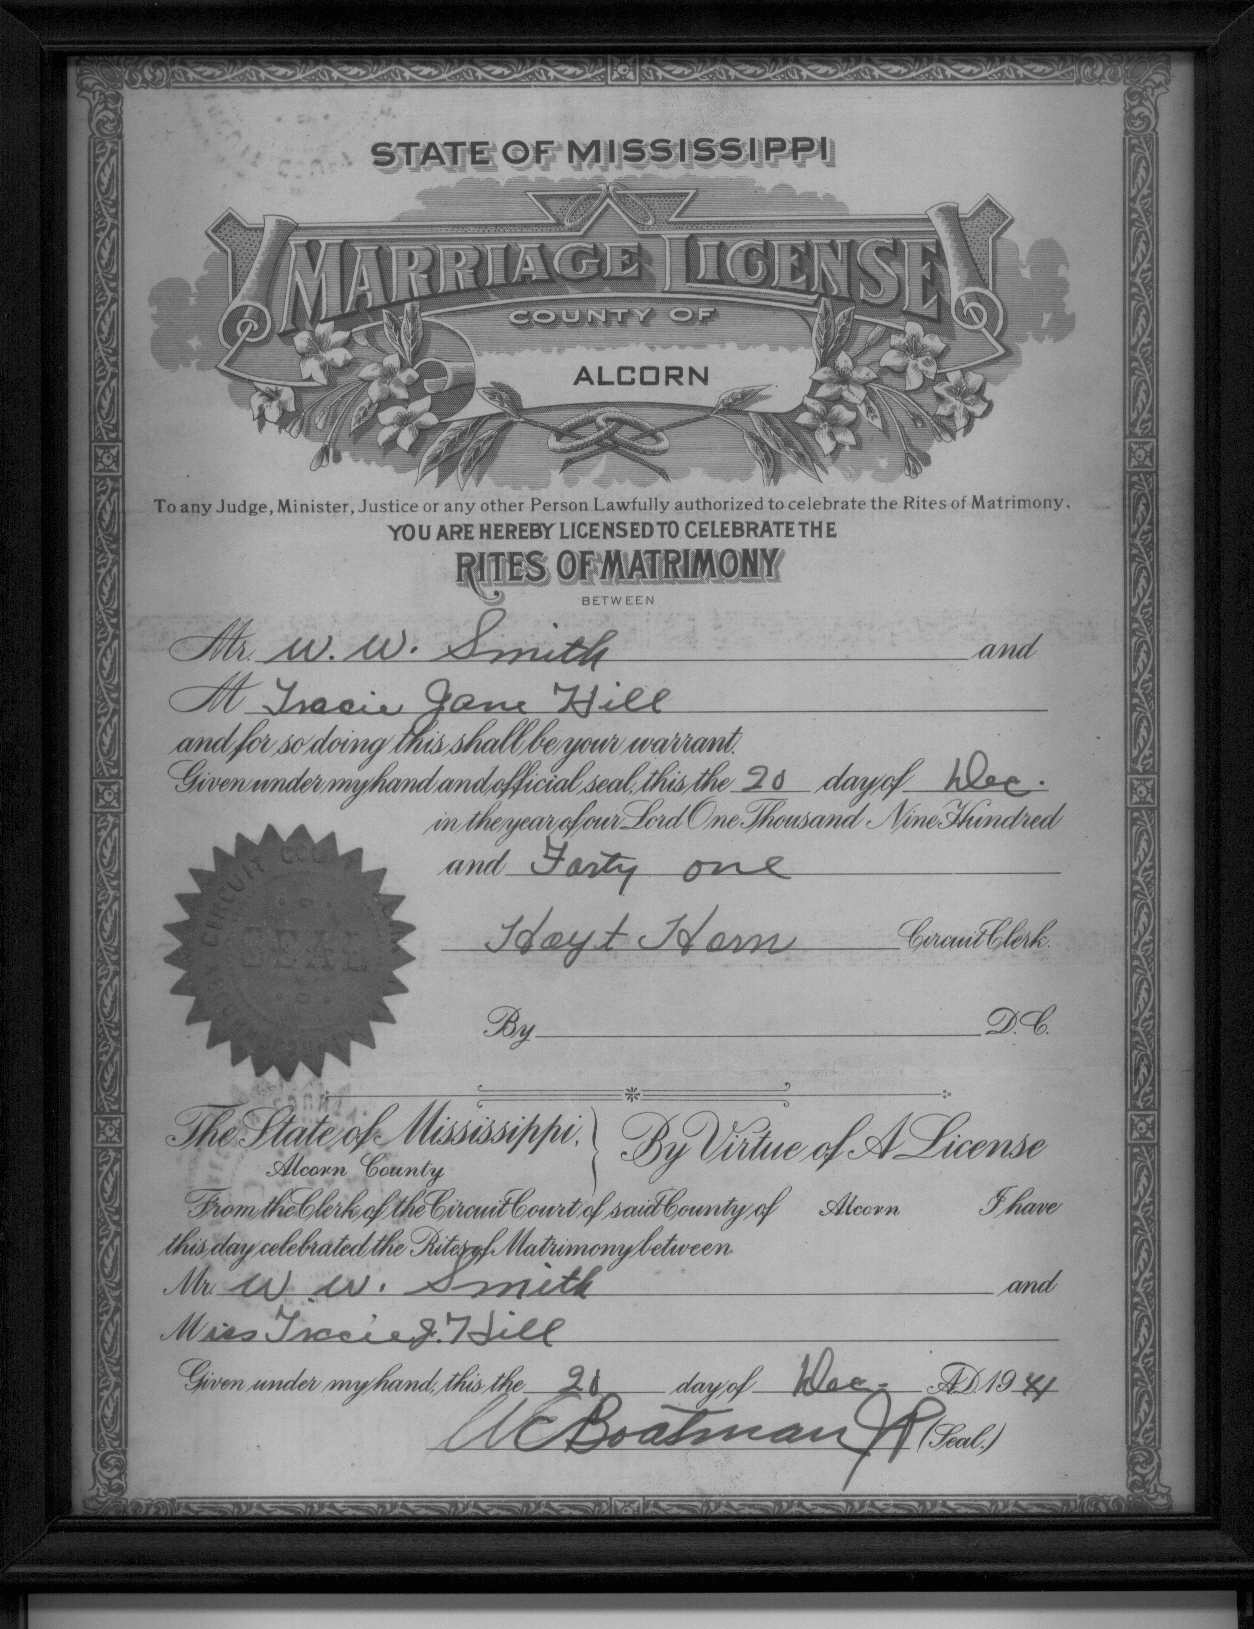 STATE OF MISSISSIPPI
MARRIAGE LICENSE
COUNTY OF
ALCORN
To any Judge, Minister, Justice or any other Person Lawfully authorized to celebrate the Rites of Matrimony.
YOU ARE HEREBY LICENSED TO CELEBRATE THE
RITES OF MATRIMONY
BETWEEN
Mr. W. W. Smith and
M Tracie Jane Hill
and for so doing this shall be your warrant.
Given under my hand and official seal, this the 20 day of Dec.
in the year of our Lord One Thousand Nine Hundred
and Forty one
Hoyt Horn Circuit Clerk.
CIRCUIT
SEAL
By D. C.
The State of Mississippi, } By Virtue of A License
Alcorn County
From the Clerk of the Circuit Court of said County of Alcorn I have
this day celebrated the Rites of Matrimony between
Mr. W. W. Smith and
Miss Tracie J. Hill
Given under my hand, this the 20 day of Dec. A.D. 1941
Boatman JP (Seal.)